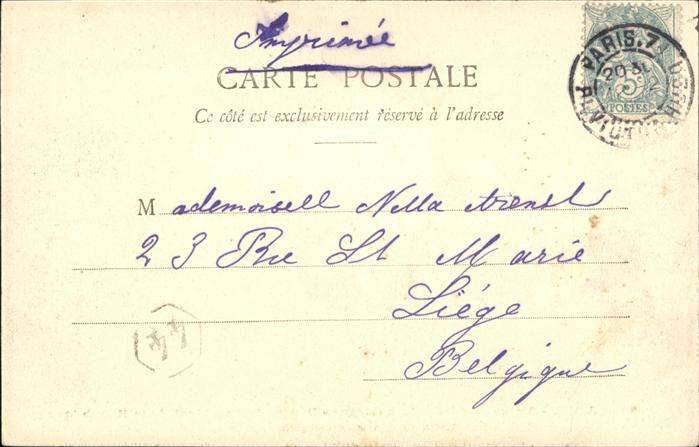 Imprimée
CARTE POSTALE
Ce côté est exclusivement réservé à l'adresse
PARIS.7
20
5c
POSTES
Mademoisell Nella Arenst
23 Rue St Marie
Liége
Belgique